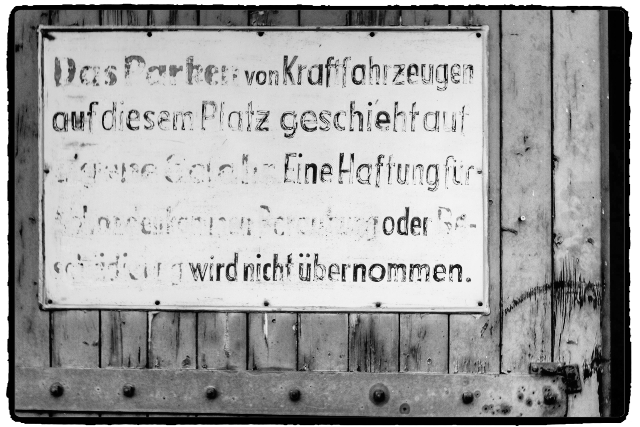 Das Parken von Kraftfahrzeugen
auf diesem Platz geschieht auf
eigene Gefahr. Eine Haftung für
oder Be-
schädigung wird nicht übernommen.